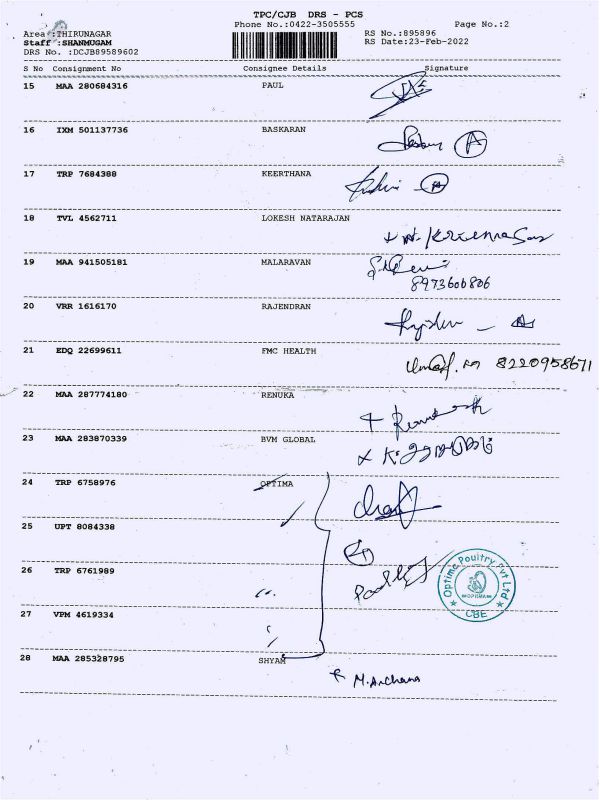 TPC/CJB DRS - PCS
Phone No.:0422-3505555 Page No.:2
Area :THIRUNAGAR RS No.:895896
Staff :SHANMUGAM RS Date:23-Feb-2022
DRS No. :DCJB89589602
S No Consignment No Consignee Details Signature
15 MAA 280684316 PAUL
16 IXM 501137736 BASKARAN
17 TRP 7684388 KEERTHANA
18 TVL 4562711 LOKESH NATARAJAN
19 MAA 941505181 MALARAVAN
8973600806
20 VRR 1616170 RAJENDRAN
21 EDQ 22699611 FMC HEALTH 8220958671
22 MAA 287774180 RENUKA
23 MAA 283870339 BVM GLOBAL
24 TRP 6758976 OPTIMA
25 UPT 8084338
26 TRP 6761989
Optima Poultry Pvt Ltd
OPTIMA
CBE
27 VPM 4619334
28 MAA 285328795 SHYAM
M.Archana